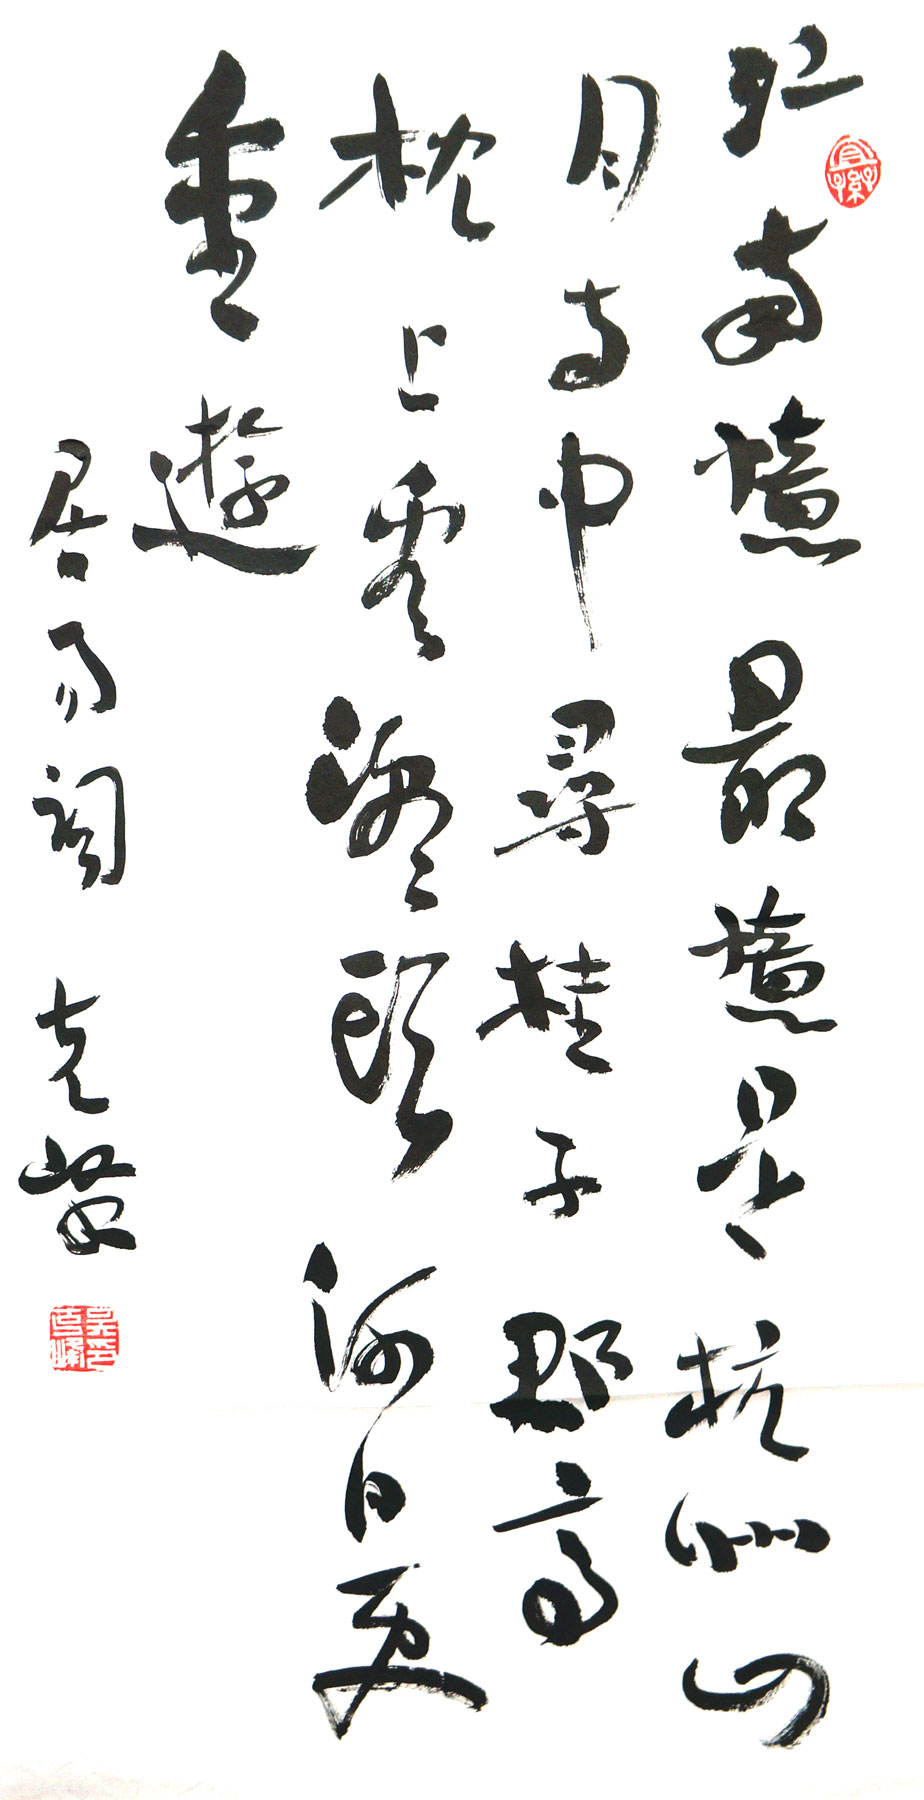 江南憶最憶是杭州山
月寺中尋桂子郡亭
枕上看潮頭何日更
重遊
居易詞